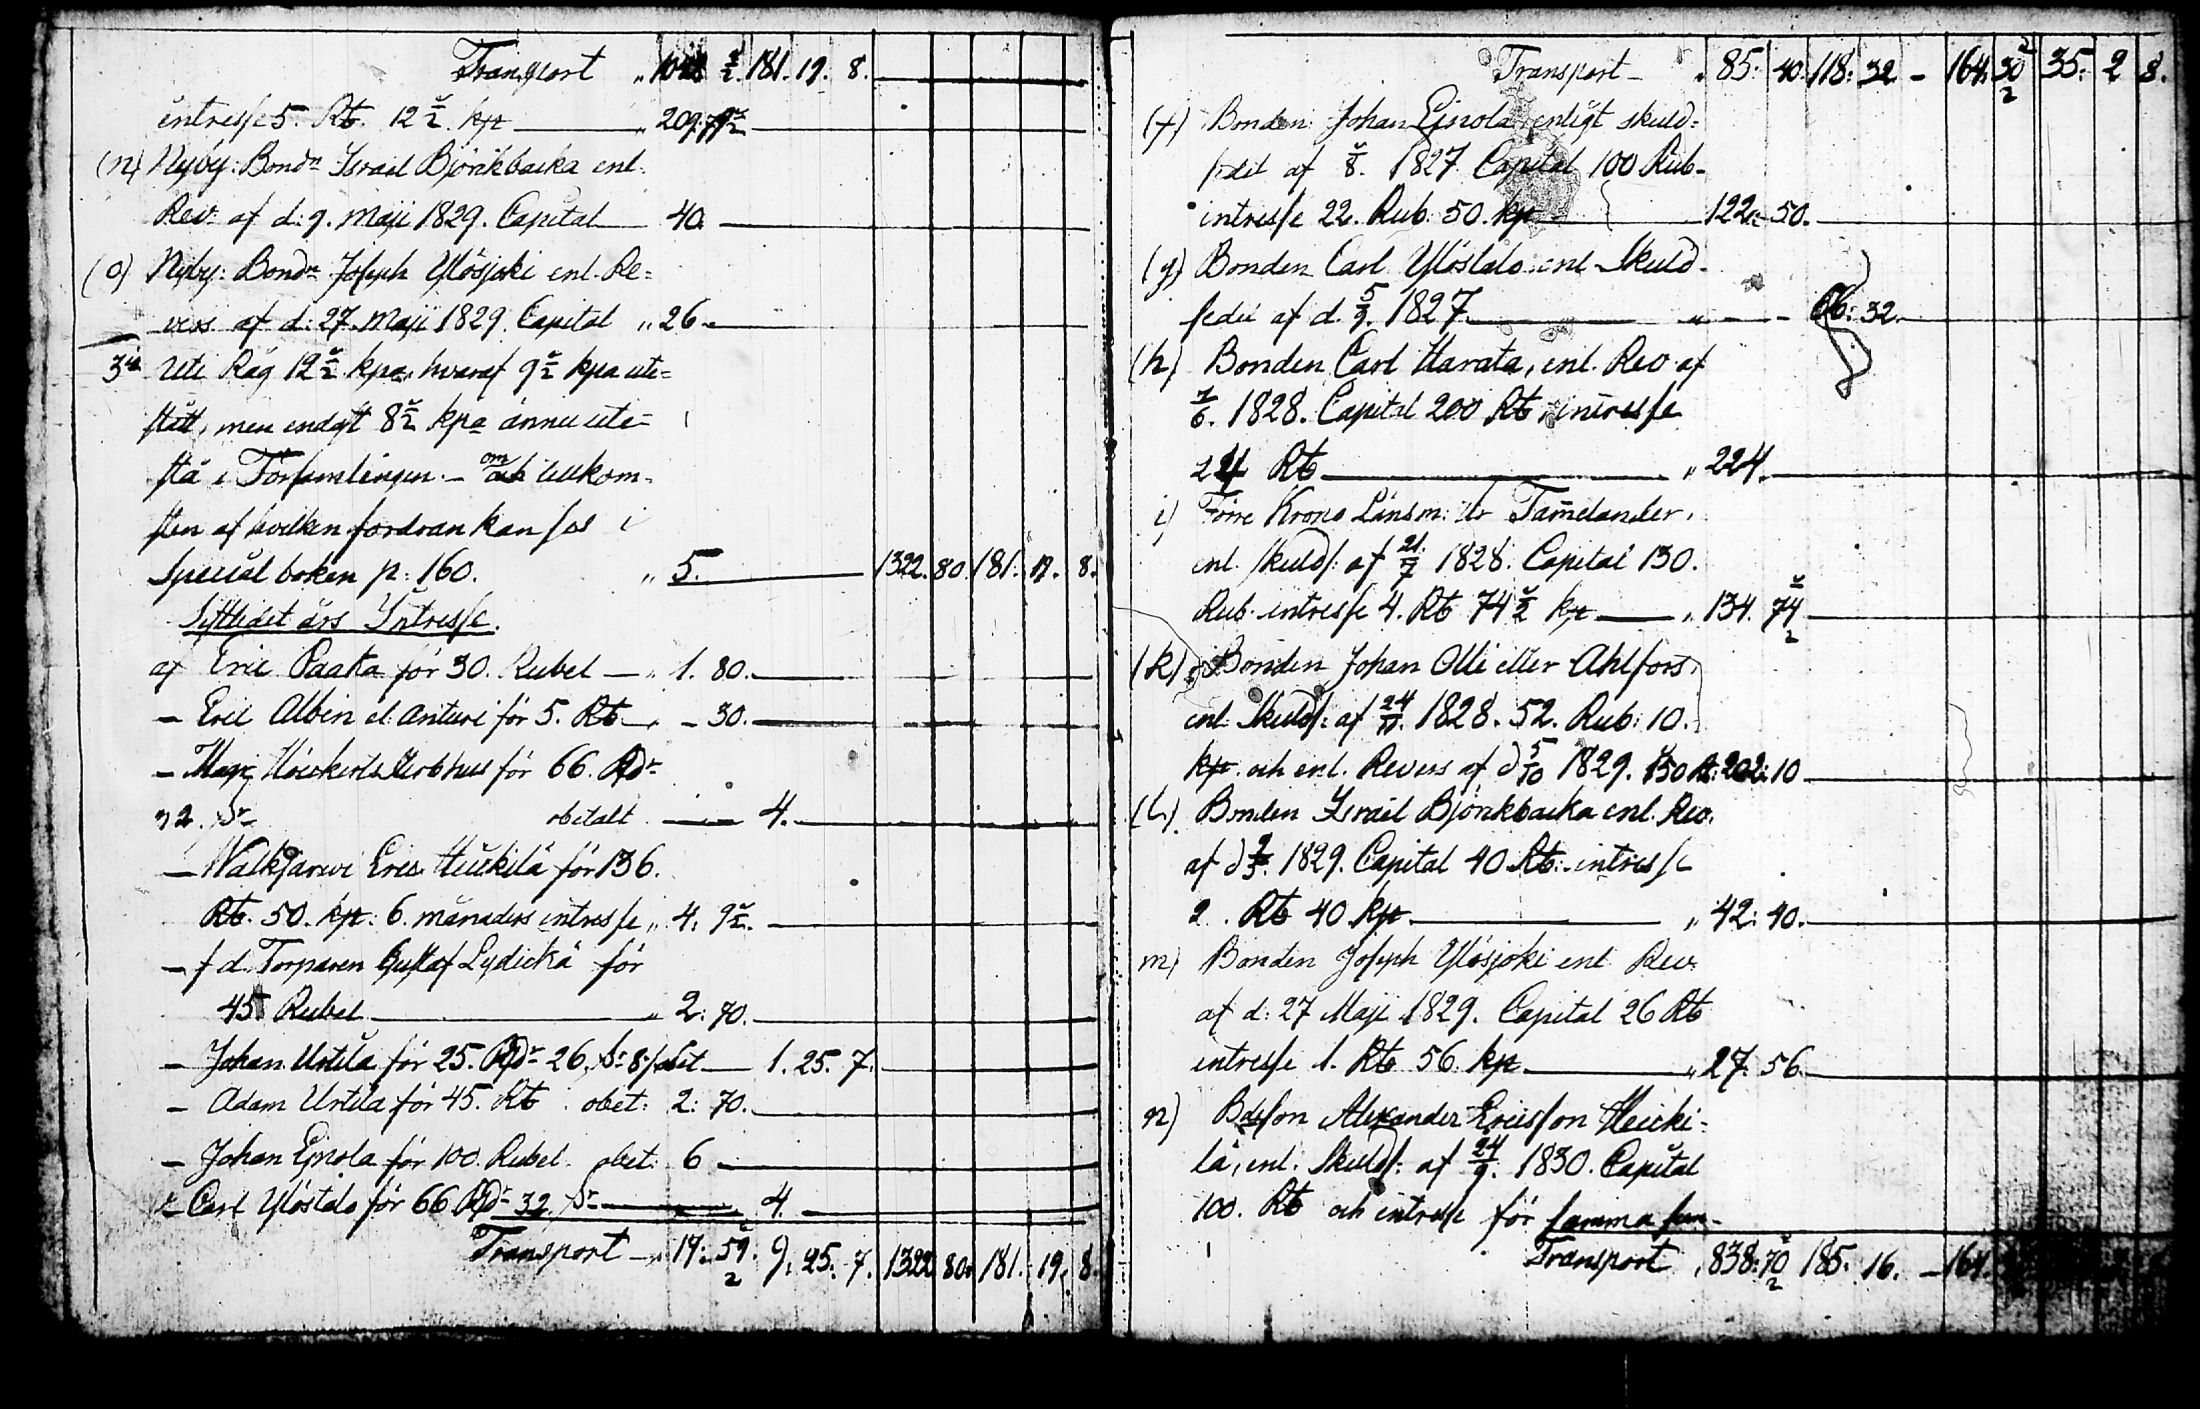 Transport „ 1048 ½. 181. 19. 8.
intresse 5. Rb. 12 ½ kp „ 209. 79 ½
(n) Nyby: Bondn Israel Björkbacka enl.
Rev. af d: 9. Maji 1829. Capital 40.
(o) Nyby: Bondn Joseph Ylösjoki enl. Re=
vers af d: 27. Maji 1829. Capital „ 26.
3io Uti Råg 12 ½ kpa, hvaraf 9 ½ kpa ute=
stått, men endast 8 ½ kpa ännu ute=
stå i Församlingen. – om tillkom-
sten af hvilken fordran kan ses i
Special boken p: 160. „ 5. 1322. 80. 181. 19. 8.
Sistledit års Intresse.
af Eric Paaka för 30. Rubel — „ 1. 80.
– Eric Albin el. Anturi för 5. Rb – „ – 30.
– Maj: Höckerts Sterbhus för 66. Rdr
32. sr obetalt — 4.
– Walkjärwi Eric Heickilä för 136.
Rb. 50. kp: 6. månaders intresse „ 4. 9 ½.
– f d. Torparen Gustaf Lydickä för
45 Rubel „ 2: 70.
– Johan Urtila för 25. Rdr 26. sr 8 1. 25. 7.
– Adam Urtila för 45. Rb obet: 2: 70.
– Johan Ejnola för 100. Rubel. obet: 6
– Carl Ylöstalo för 66 Rdr 32. sr 4.
Transport – „ 19: 59 ½. 9. 25. 7. 1322 80. 181. 19. 8.
Transport – „ 85: 40. 118: 32 – 164. 30 ½ 35. 2 8.
(f) Bonden Johan Ejnola enligt skuld=
sedel af 1827. Capital 100 Rub-
intresse 22. Rub. 50. kp 122: 50.
(g) Bonden Carl Ylöstalo enl Skuld-
sedel af d. 5/3. 1827 „ — – 66: 32.
(h) Bonden Carl Harata, enl. Rev af
1/6. 1828. Capital 200 Rb intresse
24 Rb „ 224.
i) Förre Krono Länsm: Hr Tamelander,
enl. skulds: af 21/7 1828. Capital 130.
Rub. intresse 4. Rb 74 ½ kp „ 134. 74 ½
(k) Bonden Johan Olli eller Ahlfors
enl: Skulds: af 24/11. 1828. 52. Rub: 10.
kp. och enl. Revers af d 5/10 1829. 150 R: 202: 10
(l). Bonden Israel Björkbacka enl. Rev.
af d 9/5. 1829. Capital 40 Rb: intresse
2. Rb 40 kp „ 42: 40.
m) Bonden Joseph Ylösjoki enl Rev.
af d: 27 Maji 1829. Capital 26 Rb
intresse 1. Rb 56. kp „ 27. 56
n) Bdeson Alexander Ericsson Heicki-
lä, enl: Skulds: af 24/9. 1830. Capital
100. Rb och intresse för samma
Transport „ 838: 70 ½ 185. 16. – 164.